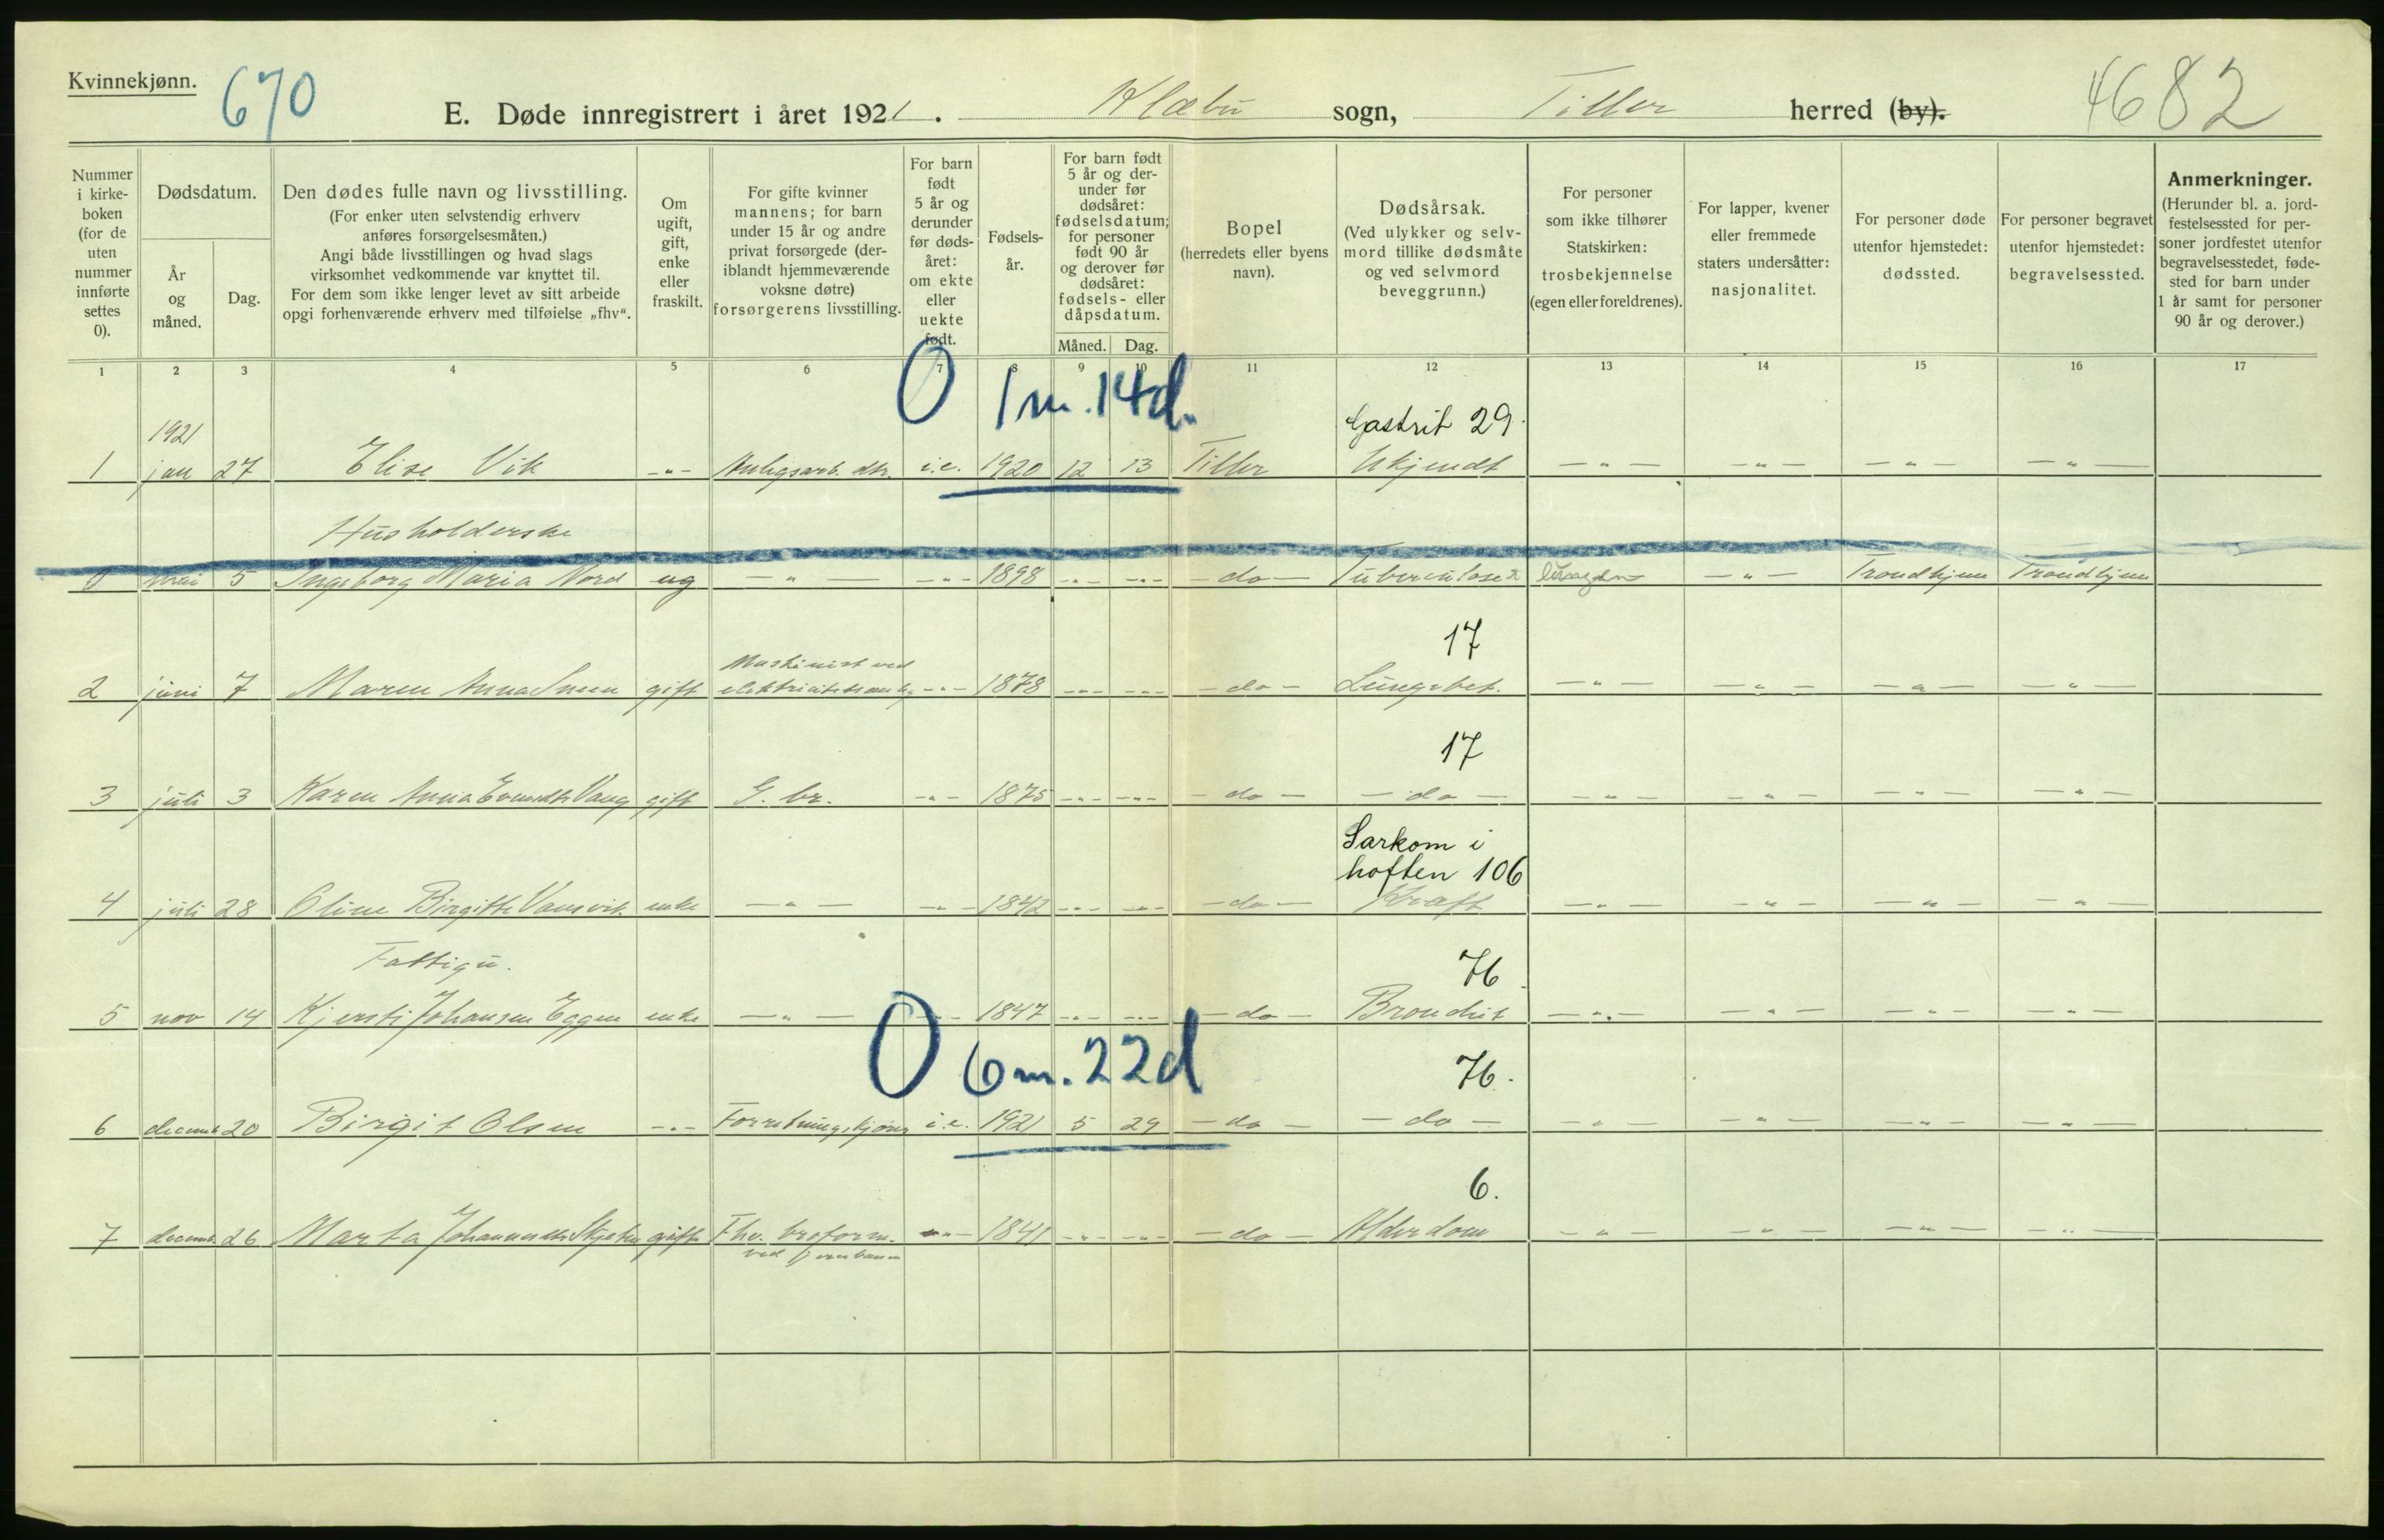 Kvinnekjønn.
670
E. Døde innregistrert i året 1921. Klæbu sogn, Tiller herred (by).
4682
Nummer i kirke-boken (for de uten nummer innførte settes 0).
Dødsdatum.
År og måned.
Dag.
Den dødes fulle navn og livsstilling.
(For enker uten selvstendig erhverv anføres forsørgelsesmåten.)
Angi både livsstillingen og hvad slags virksomhet vedkommende var knyttet til.
For dem som ikke lenger levet av sitt arbeide opgi forhenværende erhverv med tilføielse „fhv“.
Om ugift, gift, enke eller fraskilt.
For gifte kvinner mannens; for barn under 15 år og andre privat forsørgede (der-iblandt hjemmeværende voksne døtre) forsørgerens livsstilling.
For barn født 5 år og derunder før døds-året: om ekte eller uekte født.
Fødsels-år.
For barn født 5 år og der-under før dødsåret: fødselsdatum; for personer født 90 år og derover før dødsåret: fødsels- eller dåpsdatum.
Måned. Dag.
Bopel
(herredets eller byens navn).
Dødsårsak.
(Ved ulykker og selv-mord tillike dødsmåte og ved selvmord beveggrunn.)
For personer som ikke tilhører Statskirken: trosbekjennelse (egen eller foreldrenes).
For lapper, kvener eller fremmede staters undersåtter: nasjonalitet.
For personer døde utenfor hjemstedet: dødssted.
For personer begravet utenfor hjemstedet: begravelsessted.
Anmerkninger.
(Herunder bl. a. jord-festelsessted for per-soner jordfestet utenfor begravelsesstedet, føde-sted for barn under 1 år samt for personer 90 år og derover.)
1 2 3 4 5 6 7 8 9 10 11 12 13 14 15 16 17
0 1 m. 14 d.
Gastrit 29.
1921
1 jan 27 Elise Vik -"- dtr. i.e. 1920 12 13 Tiller Ukjendt -"- -"- -"- -"-
Husholderske
0 mai 5 Ingeborg Maria Nord ug -"- -"- 1898 -"- -"- do Tuberculose i lungene -"- Trondhjem Trondhjem
17
Maskinist ved
2 juni 7 Maren Anna Sneen gift -"- 1878 -"- -"- do Lungebet. -"- -"- -"- -"-
17
3 juli 3 Karen Anna Vang gift G. br. -"- 1875 -"- -"- do do -"- -"- -"- -"-
Sarkom i
hoften 106
4 juli 28 Oline Birgitte Vamsvik enke -"- -"- 1842 -"- -"- do Kræft -"- -"- -"- -"-
Fattigu.
76
5 nov 14 Kjersti Johansen Eggen enke -"- -"- 1847 -"- -"- do Bronchit -"- -"- -"- -"-
0 6 m. 22 d
76.
6 decemb 20 Birgit Olsen -"- i.e. 1921 5 29 do do -"- -"- -"- -"-
6.
7 decemb. 26 Marta gift Fhv. broform. -"- 1841 -"- -"- do Alderdom -"- -"- -"- -"-
ved jernbanen